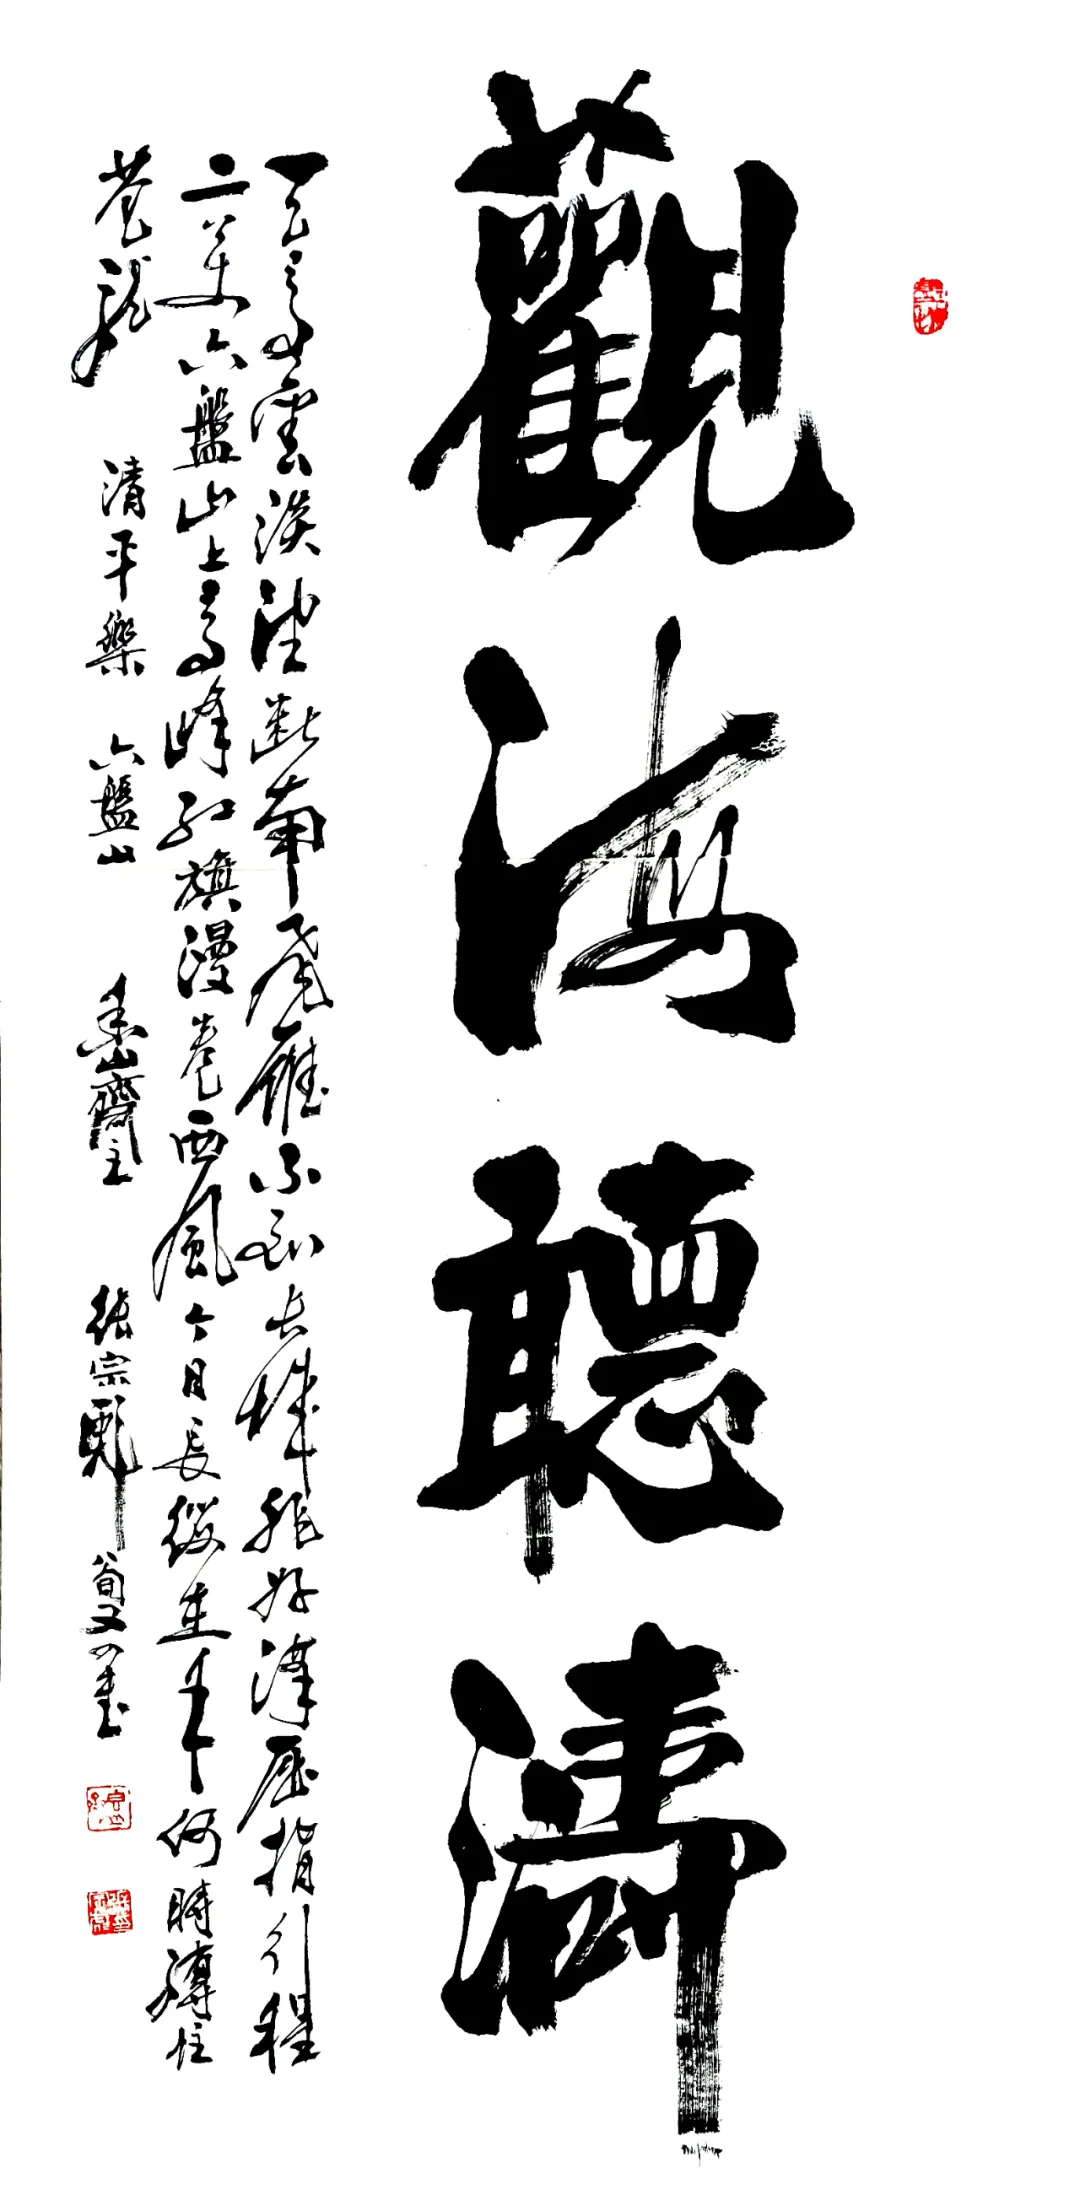 觀海聽濤
天高雲淡望斷南飛雁不到长城非好漢屈指行程
二萬六盤山上高峰红旗漫卷西風今日長缨在手何時縛住
苍龍 清平樂 六盤山 齋主 張宗彪 書